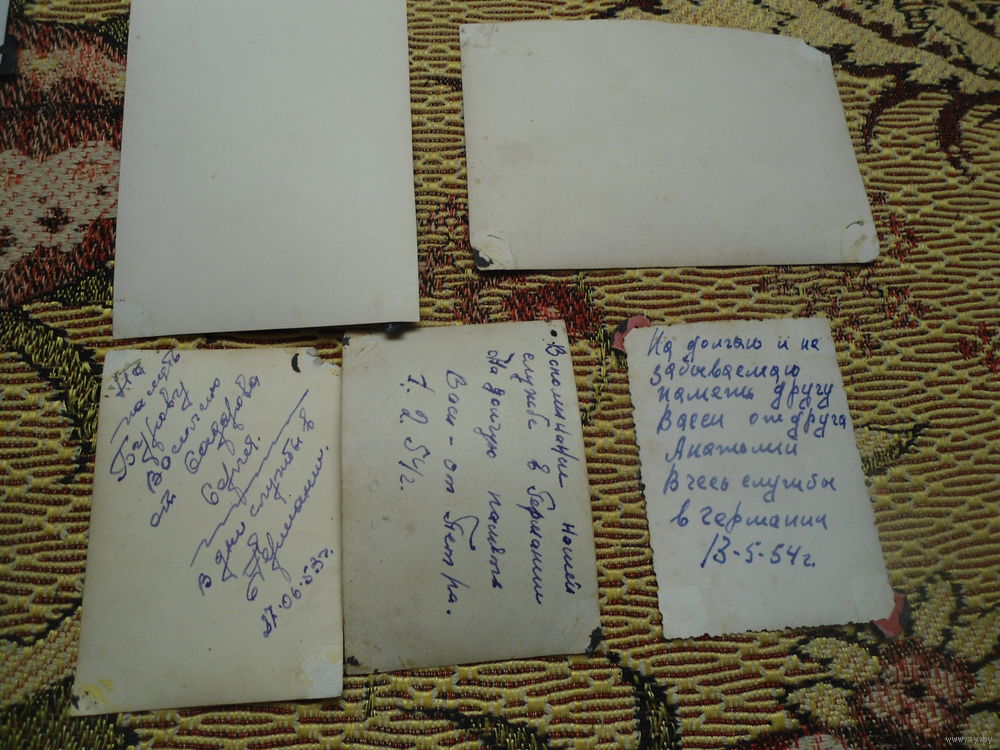 На
память
Базрову
Василию
от Сандарова
Сергея.
В дни службы в
Германии.
27.06.53г.
Вспоминании нашей
службе в Германии
На долгую память
Васи - от Петра.
7. 2. 54г.
На долгаю и на
забываемаю
память другу
Васи от друга
Анатолий
В чесь службы
в германии
13-5-54г.
www.ay.by